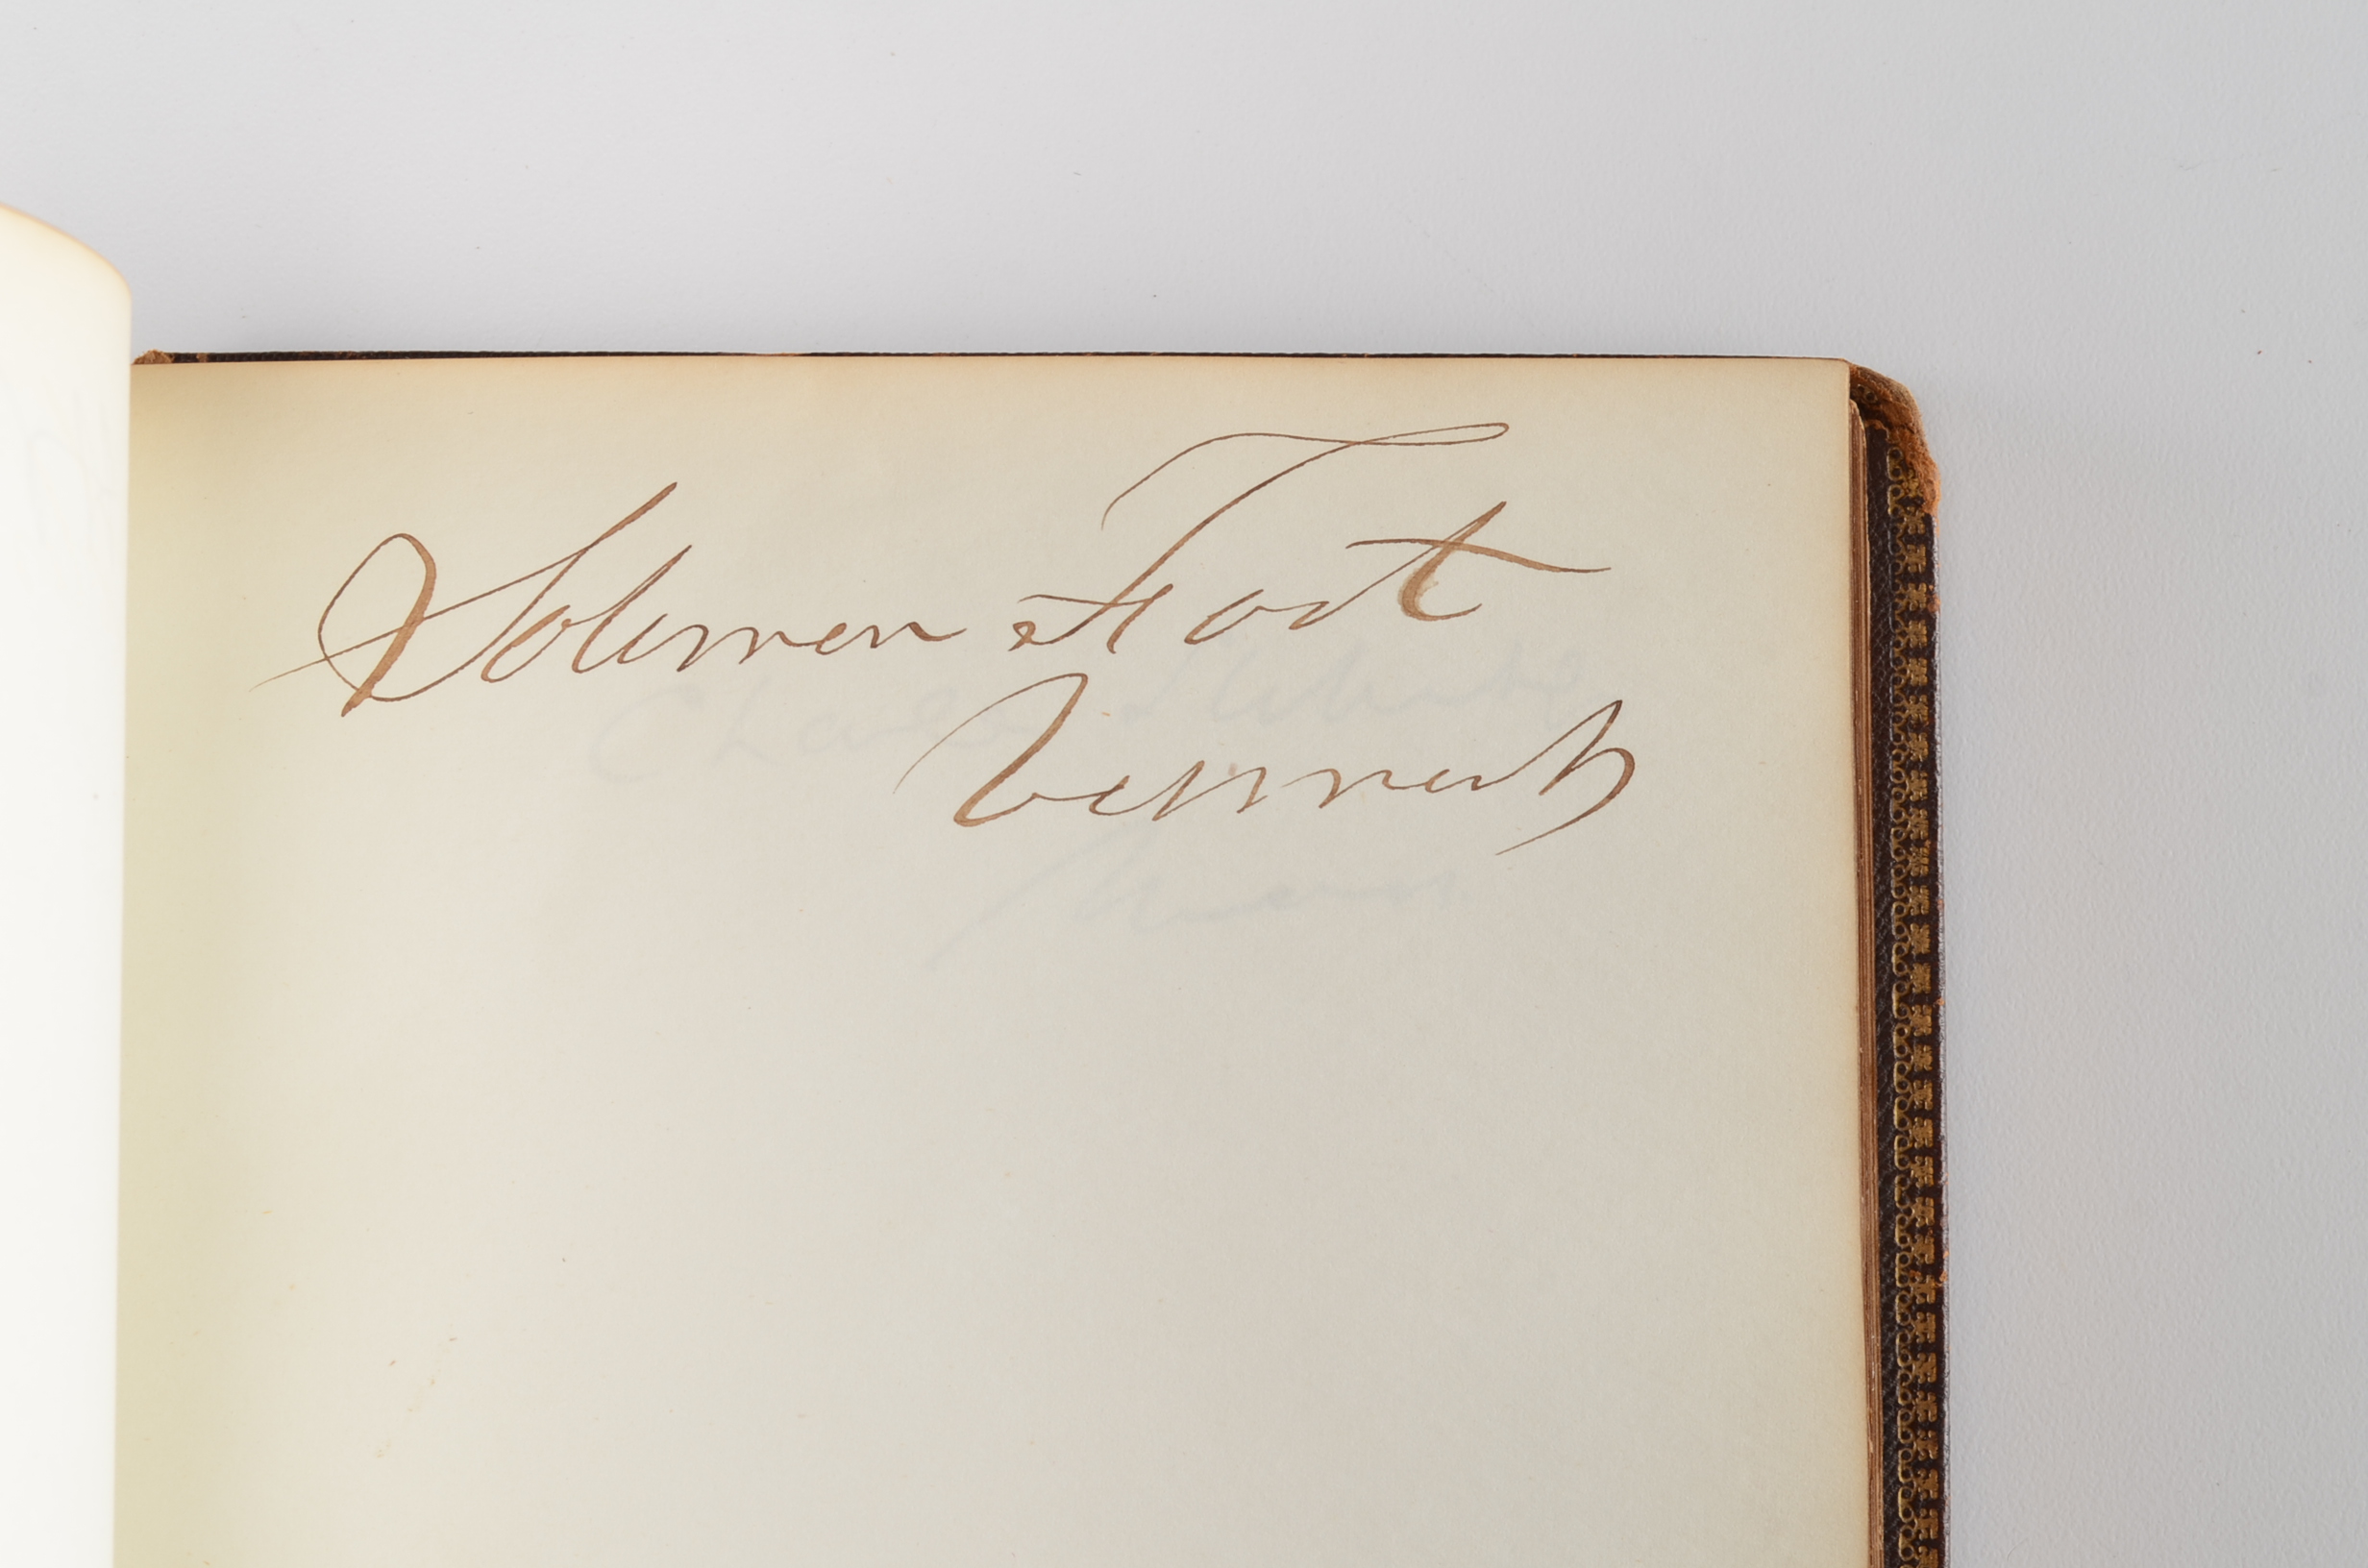 Solomon Foot
Vermont